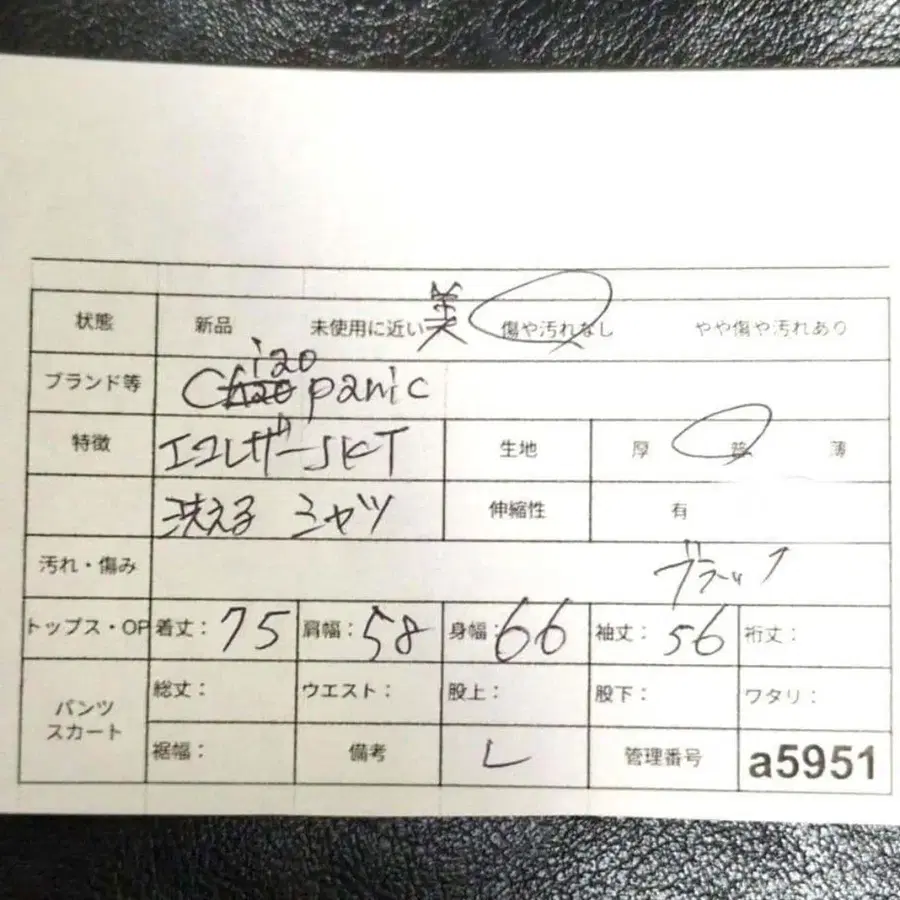 状態 新品 未使用に近い 美 傷や汚れなし やや傷や汚れあり
ブランド等 Ciao panic
特徴 エコレザーJKT 生地 厚 普 薄
洗える シャツ 伸縮性 有
汚れ・傷み ブラック
トップス・OP 着丈: 75 肩幅: 58 身幅: 66 袖丈: 56 裄丈:
パンツ スカート 総丈: ウエスト: 股上: 股下: ワタリ:
裾幅: 備考 L 管理番号 a5951